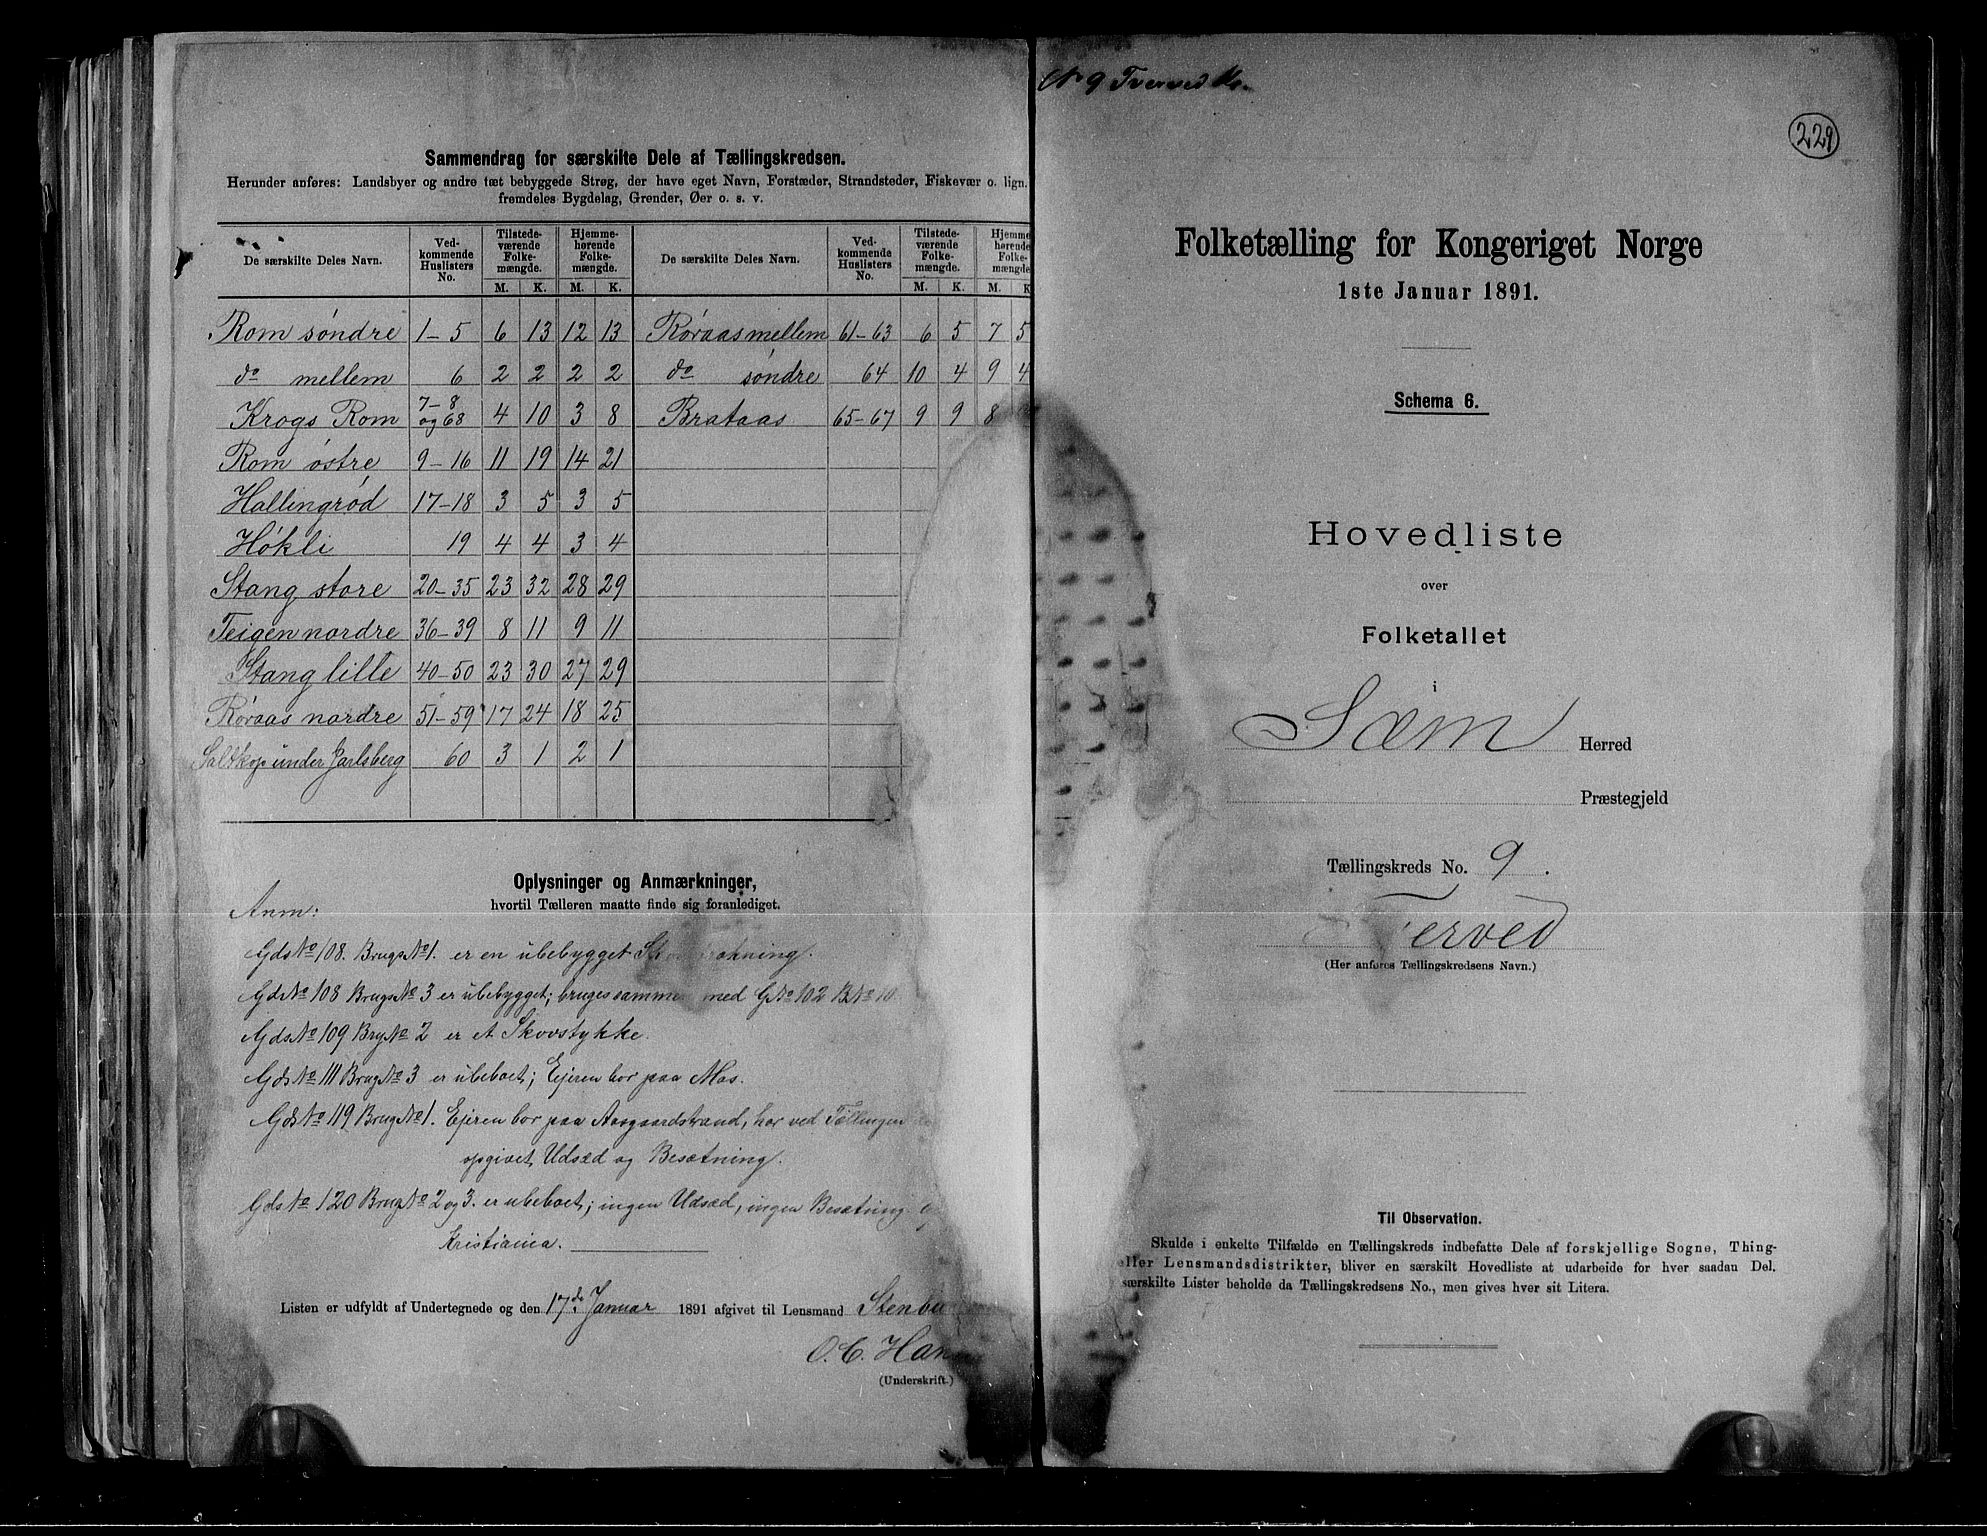 Sammendrag for særskilte Dele af Tællingskredsen.
Herunder anføres: Landsbyer og andre tæt bebyggede Strøg, der have eget Navn, Forstæder, Strandsteder, Fiskevær o. lign.
fremdeles Bygdelag, Grender, Øer o. s. v.
De særskilte Deles Navn. Vedkommende Huslisters No. Tilstedeværende Folkemængde. M. K. Hjemmehørende Folkemængde. M. K. De særskilte Deles Navn. Vedkommende Huslisters No. Tilstedeværende Folkemængde. M. K. Hjemme hørende Folke- mængde M. K
Rom søndre 1-5 6 13 12 13 Røraas mellem 61-63 6 5 7 5
do mellem 6 2 2 2 2 do søndre 64 10 4 9 4
Krogs Rom 7-8 og 68 4 10 3 8 Brataas 65-67 9 9 8
Rom østre 9-16 11 19 14 21
Hallingrød 17-18 3 5 3 5
Høkli 19 4 4 3 4
Stang store 20-35 23 32 28 29
Teigen nordre 36-39 8 11 9 11
Stang lille 40-50 23 30 27 29
Røraas nordre 51-59 17 24 18 25
Saltkop under Jarlsberg 60 3 1 2 1
Oplysninger og Anmærkninger,
hvortil Tælleren maatte finde sig foranlediget.
Anm:
Gds No 108. Brugs No 1. er en ubebygget
Gds No 108 Brugs No 3 er ubebygget; bruges sammen med G No 102 B No 10
Gds No 109 Brg No 2 er et Skovstykke.
Gds No 111 Brug No 3 er ubeboet; Ejeren bor paa Mos.
Gds No 119 Brug No 1. Ejeren bor paa Aasgaardstrand, har ved Tællingen
opgivet Udsæd og Besætning.
Gds No 120 Brug No 2 og 3. er ubeboet; ingen Udsæd, ingen Besætning
Kristiania.
Listen er udfyldt af Undertegnede og den 17de Januar 1891 afgivet til Lensmand
O. C. Han
(Underskrift.)
No 9 Tverved Kr.
229
Folketælling for Kongeriget Norge
1ste Januar 1891.
Schema 6.
Hovedliste
over
Folketallet
i
Sæm Herred
Præstegjeld
Tællingskreds No. 9.
erved
(Her anføres Tællingskredsens Navn.)
Til Observation.
Skulde i enkelte Tilfælde en Tællingskreds indbefatte Dele af forskjellige Sogne, Thing-
eller Lensmandsdistrikter, bliver en særskilt Hovedliste at udarbeide for hver saadan Del.
særskilte Lister beholde da Tællingskredsens No., men gives hver sit Litera.